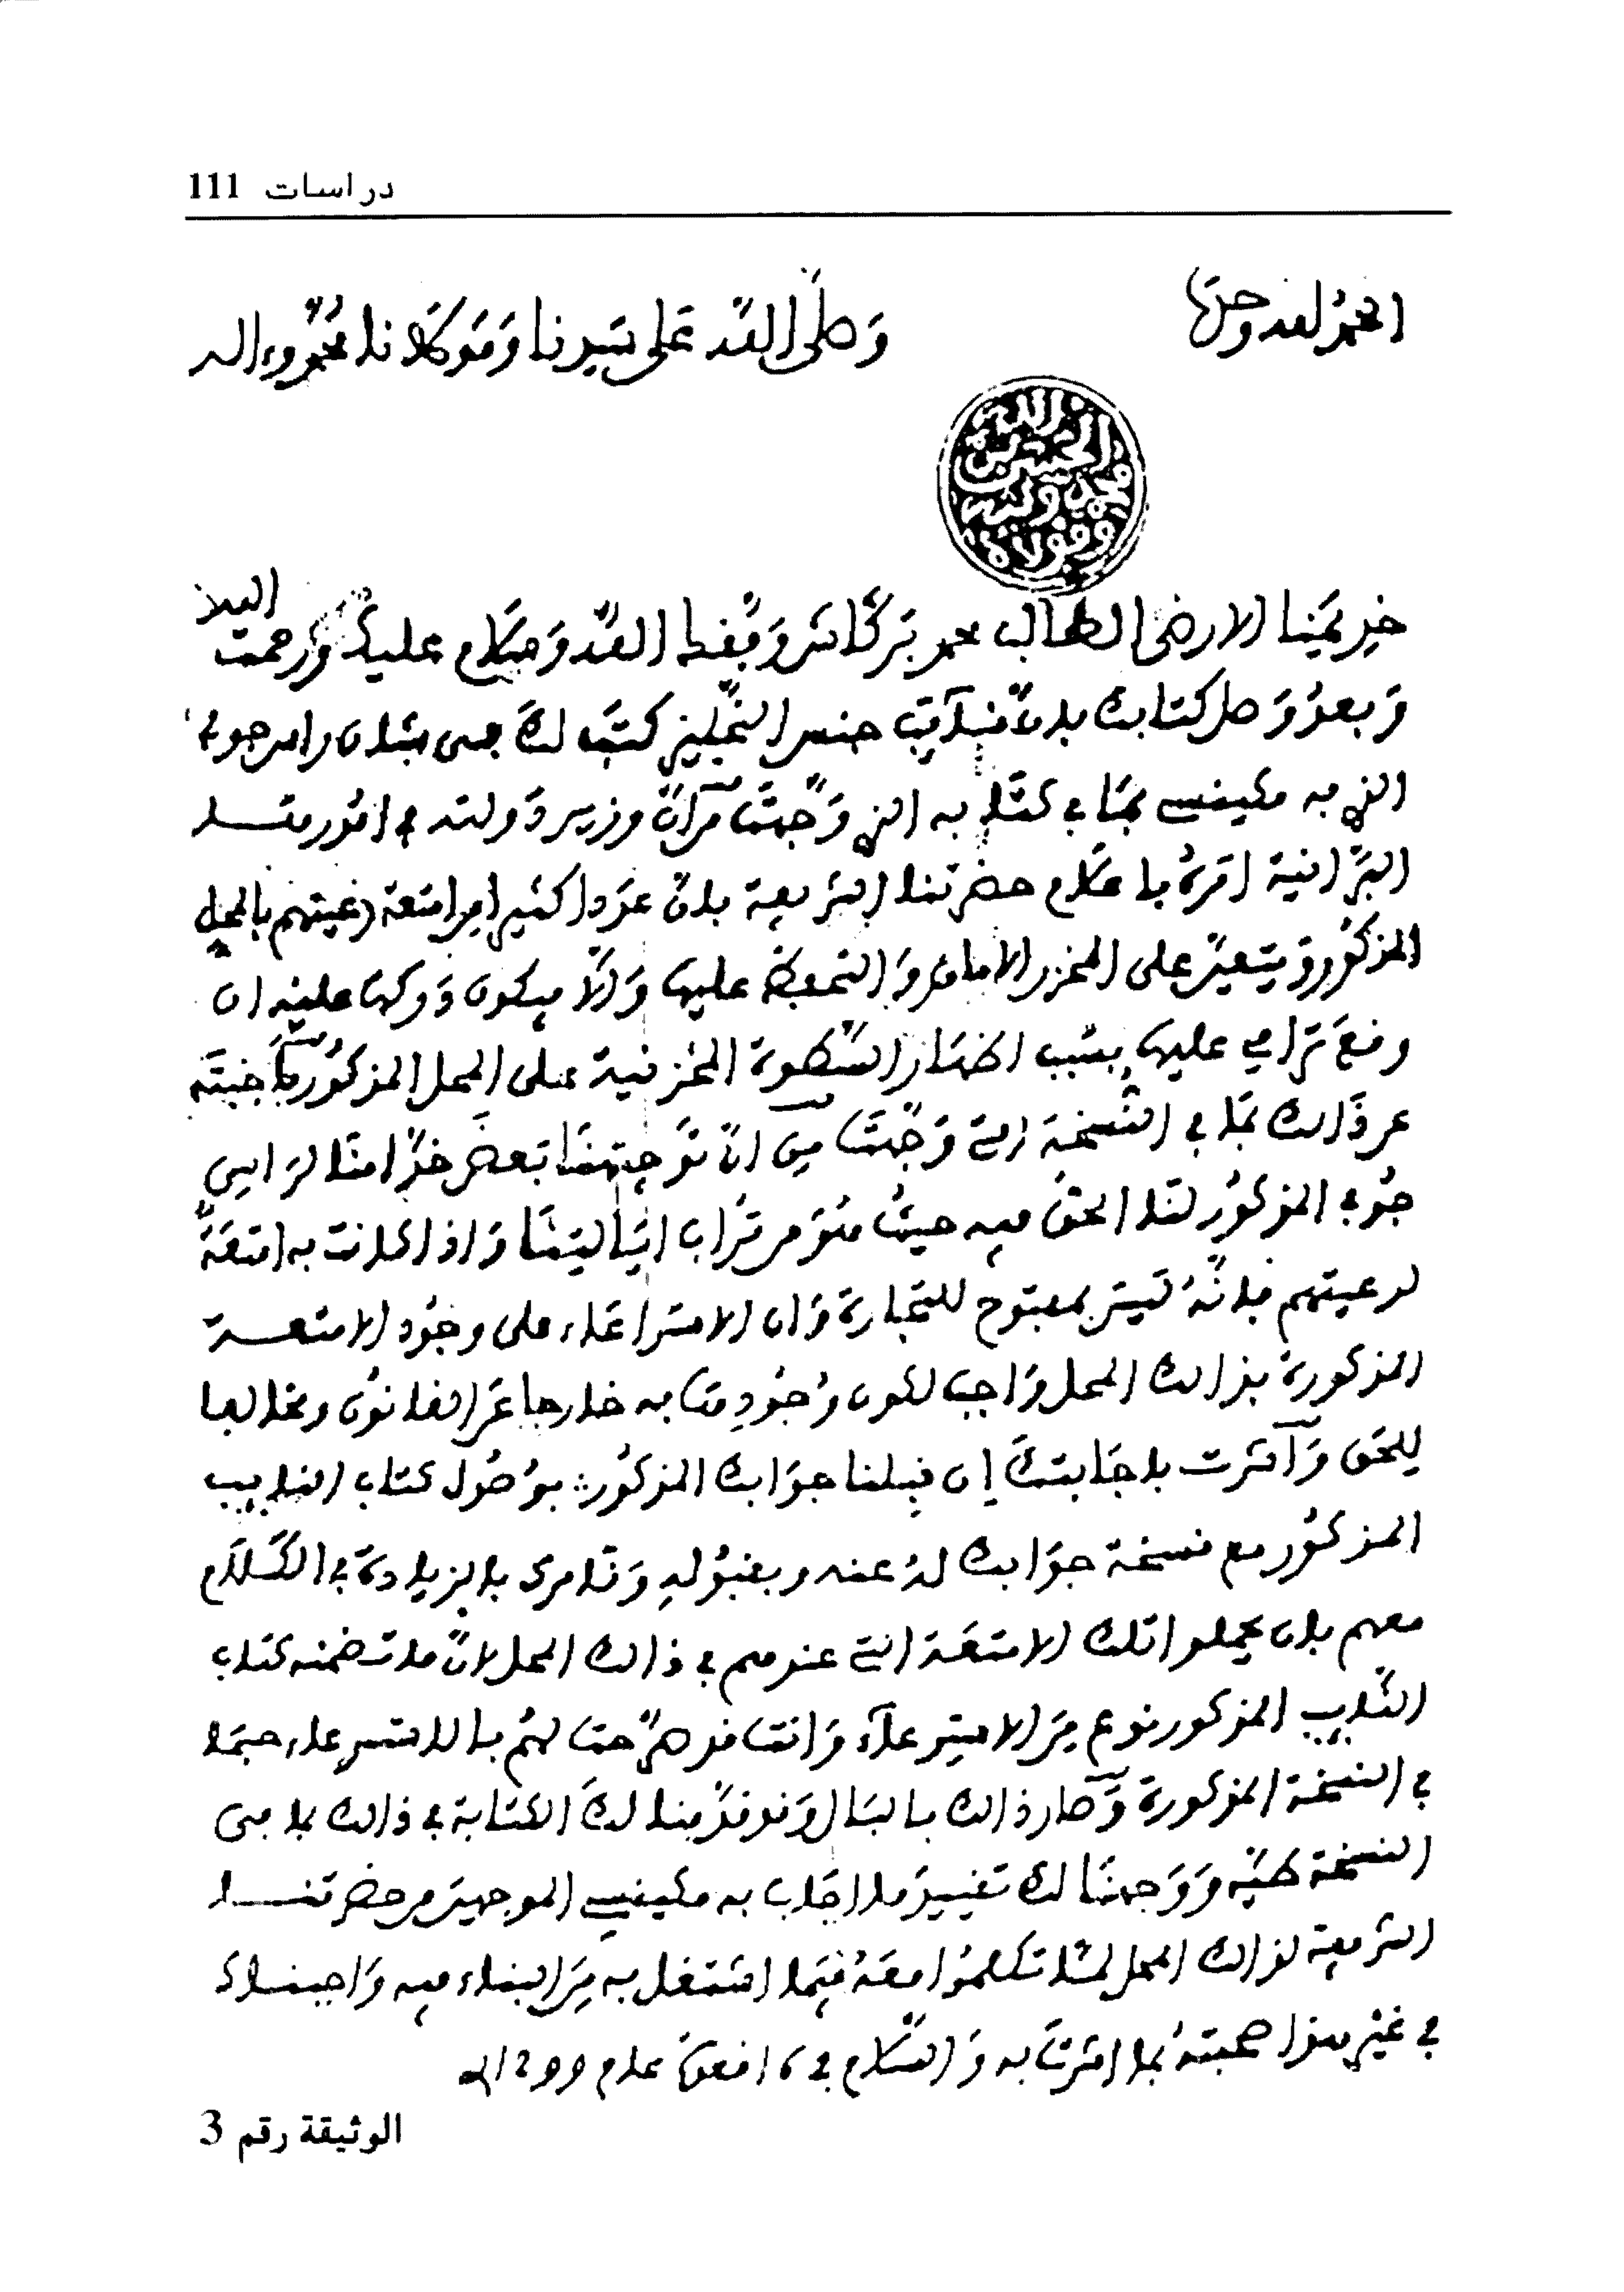 دراسات 111
الحمد لله وحده
وصلى الله على سيدنا ومولانا محمد وءاله
الحسن بن محمد الله وليه ومولاه
خديمنا الارضى الطالب محمد بركاش وفقك الله وسلام عليك ورحمت الله
وبعد وصل كتابك بان نايب جنس النجليز كتب لك في شان راس جوبي
الذي به مكينسي بما في كتابه الذي وجهت من ان وزير دولته في امور
البرانية امره باعلام حضرتنا الشريفة بان عددا كثيرا من امتعة رعيتهم بالمحل
المذكور ويتعين على المخزن الامان والتحفظ عليها والا فيكون دركها عليه ان
وقع ترامي عليها بسبب اظهار السطوة المخزنية على المحل المذكور فاجبته
عن ذالك بما في النسخة التي وجهت من ان توجيهنا بعض خدامنا لراس
جوبي المذكور لنا الحق فيه حيث هو من تراب ايالتنا واذا كانت به امتعة
لرعيتهم فانه ليس بمفتوح للتجارة وان الاسترعاء على وجود الامتعة
المذكورة بذالك المحل واجب لكون وجودها به خارجا عن القانون ومخالفا
للحق وأكدت باجابتك ان قبلنا جوابك المذكور بوصول كتاب النايب
المذكور مع نسخة جوابك له عنه وبقبوله وتامرك بالزيادة في الكلام
معهم بان يحملوا تلك الامتعة التي عندهم في ذالك المحل لان ما تضمنه كتاب
النايب المذكور نوع من الاسترعاء وانت قد صرحت لهم بالاسترعاء حسبما
في النسخة المذكورة وصار ذالك بالبال وقد قدمنا لك الكتابة في ذالك بما في
النسخة طيه ووجهنا لك تفسير ما اجاب به مكينسي الموجهين من حضرتنا
الشريفة لذالك المحل لما تكلموا معه فيما اشتغل به من البناء فيه واجبناك
في غير هذا صحبته بما اشرت به والسلام في قعدة عام 1299
الوثيقة رقم 3